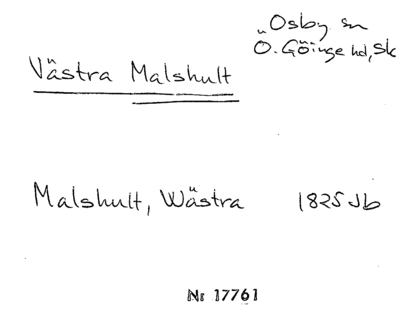 Osby sn
Ö. Göinge hd, Sk
Västra Malshult
Malshult, Wästra 1825 Jb
Nr 17761